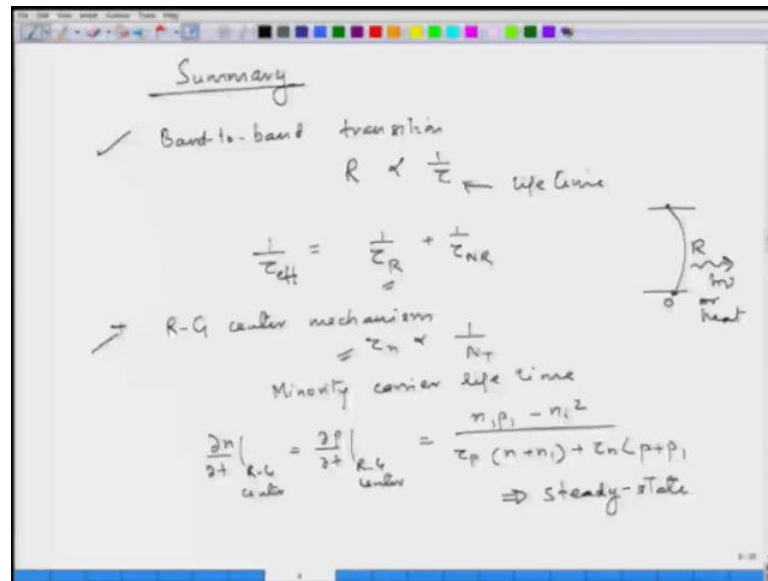 Summary
✓ Band-to-band transition
R ∝ 1/τ ← life time
1/τeff = 1/τR + 1/τNR
R
hν
or
heat
→ R-G center mechanism
τn ∝ 1/NT
Minority carrier life time
∂n/∂t |R-G center = ∂p/∂t |R-G center = n1p1 - ni2 / τp (n+n1) + τn (p+p1
⇒ steady-state